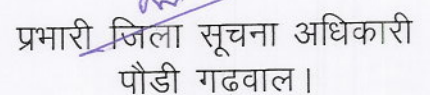 प्रभारी जिला सूचना अधिकारी
पौडी गढवाल।